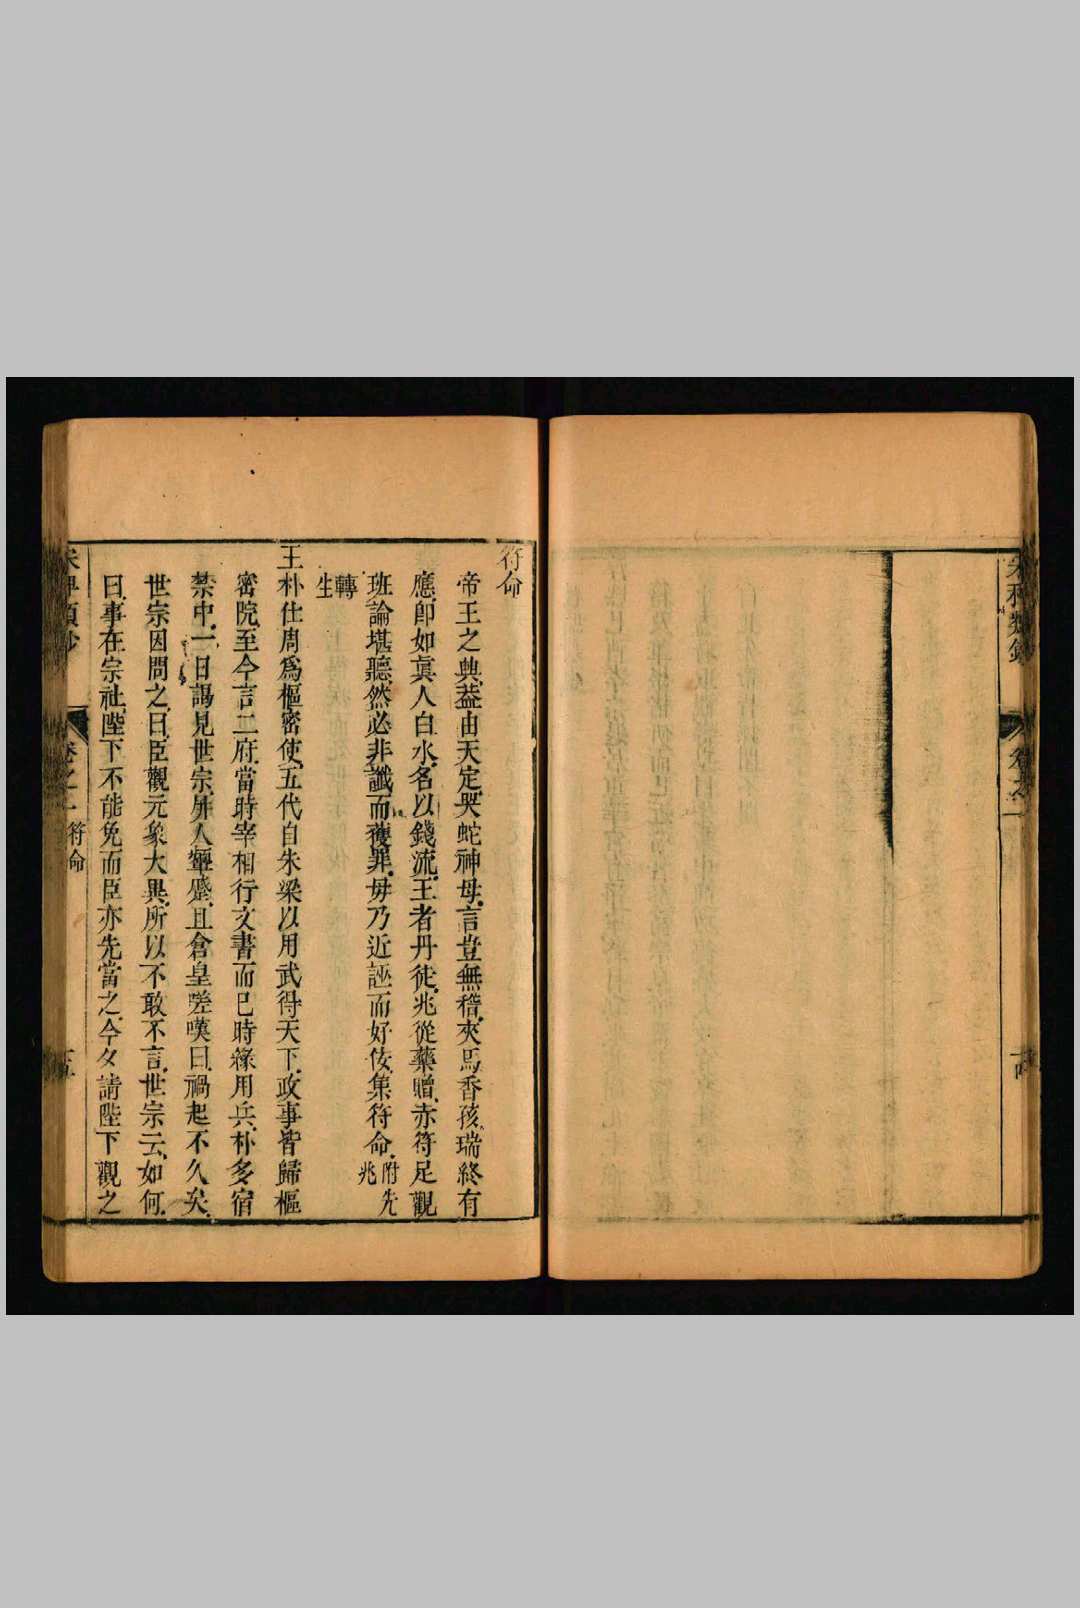 宋稗類鈔
卷之一
十四
符命
帝王之典葢由天定哭蛇神母言豈無稽夾馬香孩瑞終有
應卽如眞人白水名以錢流王者丹徒兆從藥贈赤符足觀
班論堪聽然必非讖而獲罪毋乃近誣而好佞集符命附先兆
轉生
王朴仕周爲樞密使五代自朱梁以用武得天下政事皆歸樞
密院至今言二府當時宰相行文書而已時緣用兵朴多宿
禁中一日謁見世宗屏人顰蹙且倉皇嗟嘆曰禍起不久矣
世宗因問之曰臣觀元象大異所以不敢不言世宗云如何
曰事在宗社陛下不能免而臣亦先當之今夕請陛下觀之
宋稗類鈔
卷之一
符命
十五